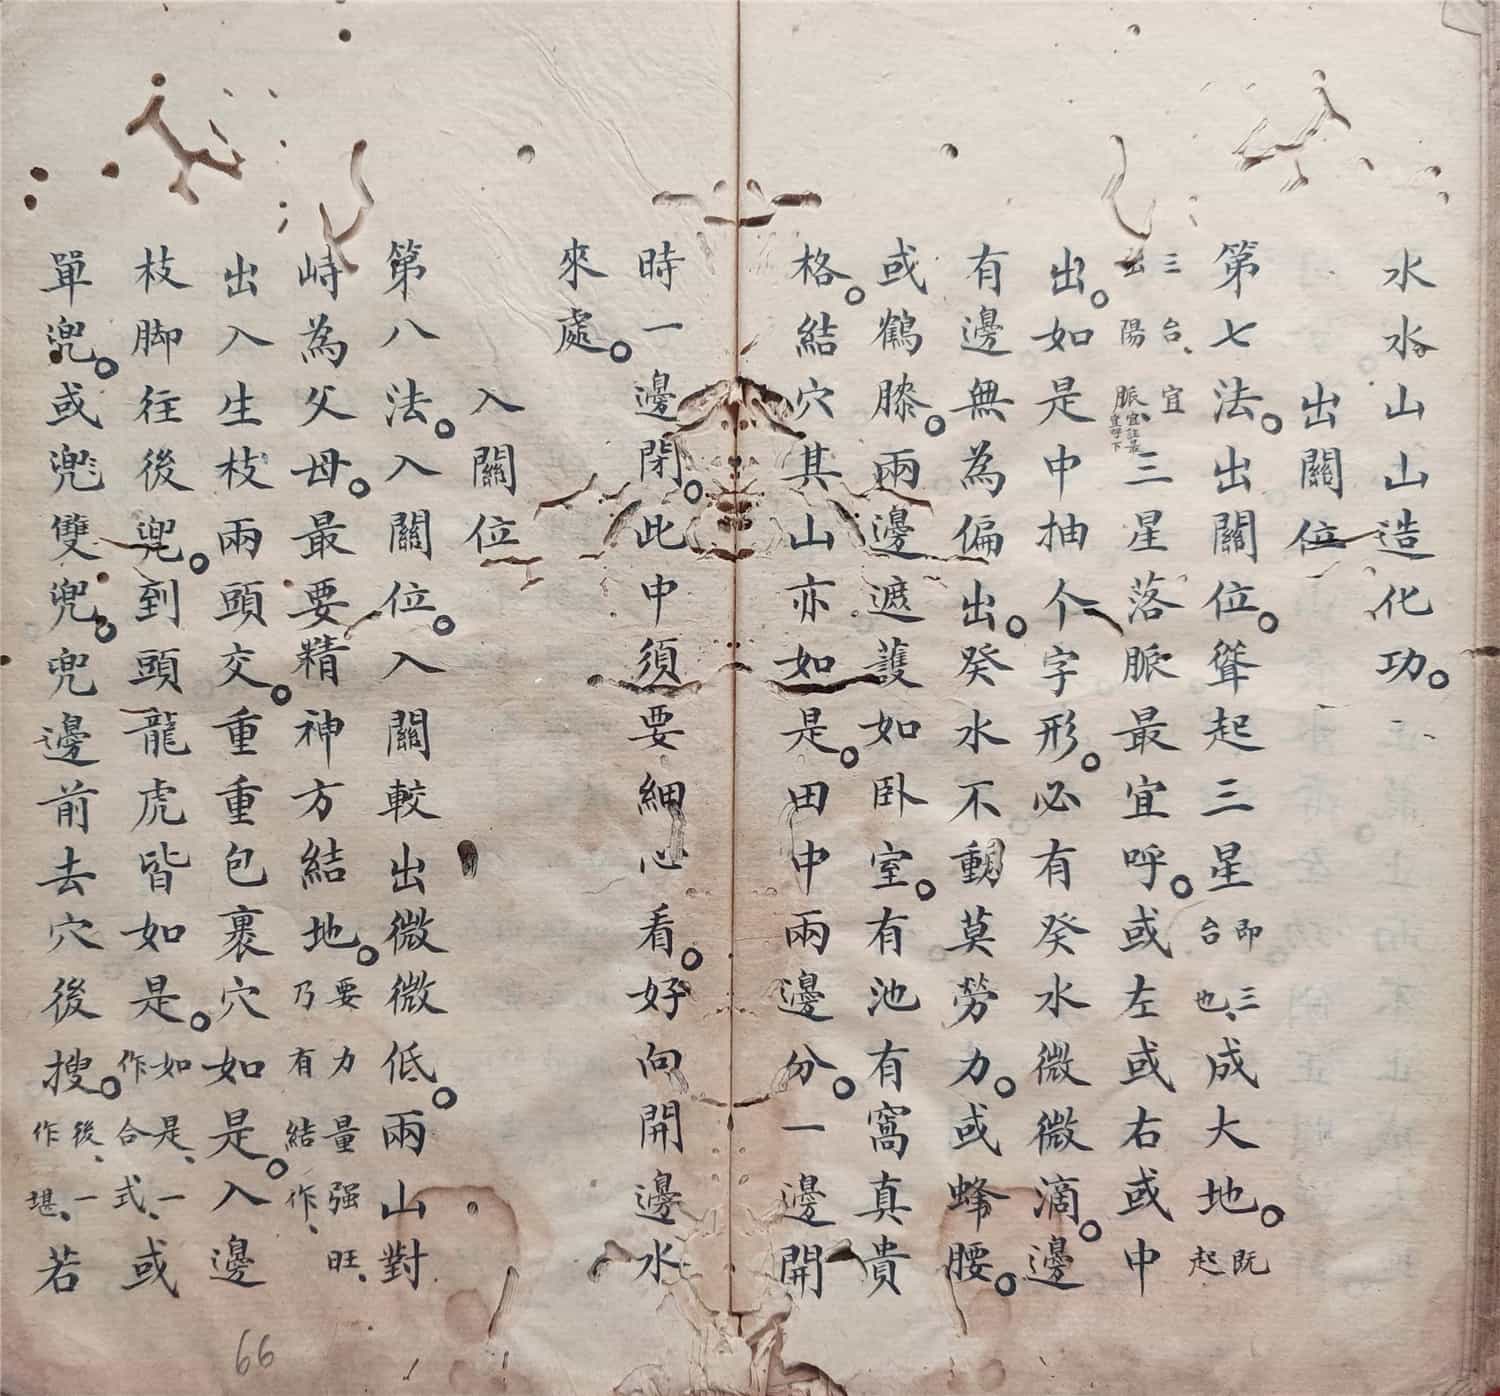 水水山山造化功。
出關位
第七法。出關位。聳起三星即三台也、成大地。既起
三台、宜出陽脈三星落脈最宜呼。或左或右或中
出。如是中抽个字形。必有癸水微微滴。邊
有邊無為偏出。癸水不動莫勞力。或蜂腰。
或鶴膝。兩邊遮護如卧室。有池有窩真貴
格。結穴其山亦如是。田中兩邊分。一邊開
時一邊閉。此中須要細心看。好向開邊水
來處。
入關位
第八法。入關位。入關較出微微低。兩山對
峙為父母。最要精神方結地。要力量强旺、乃有結作、
出入生枝兩頭交。重重包裹穴如是。入邊
枝脚往後兜。到頭龍虎皆如是。如是、一作合式、或
單兜。或兜雙兜。兜邊前去穴後搜。後、一作堪、若
66